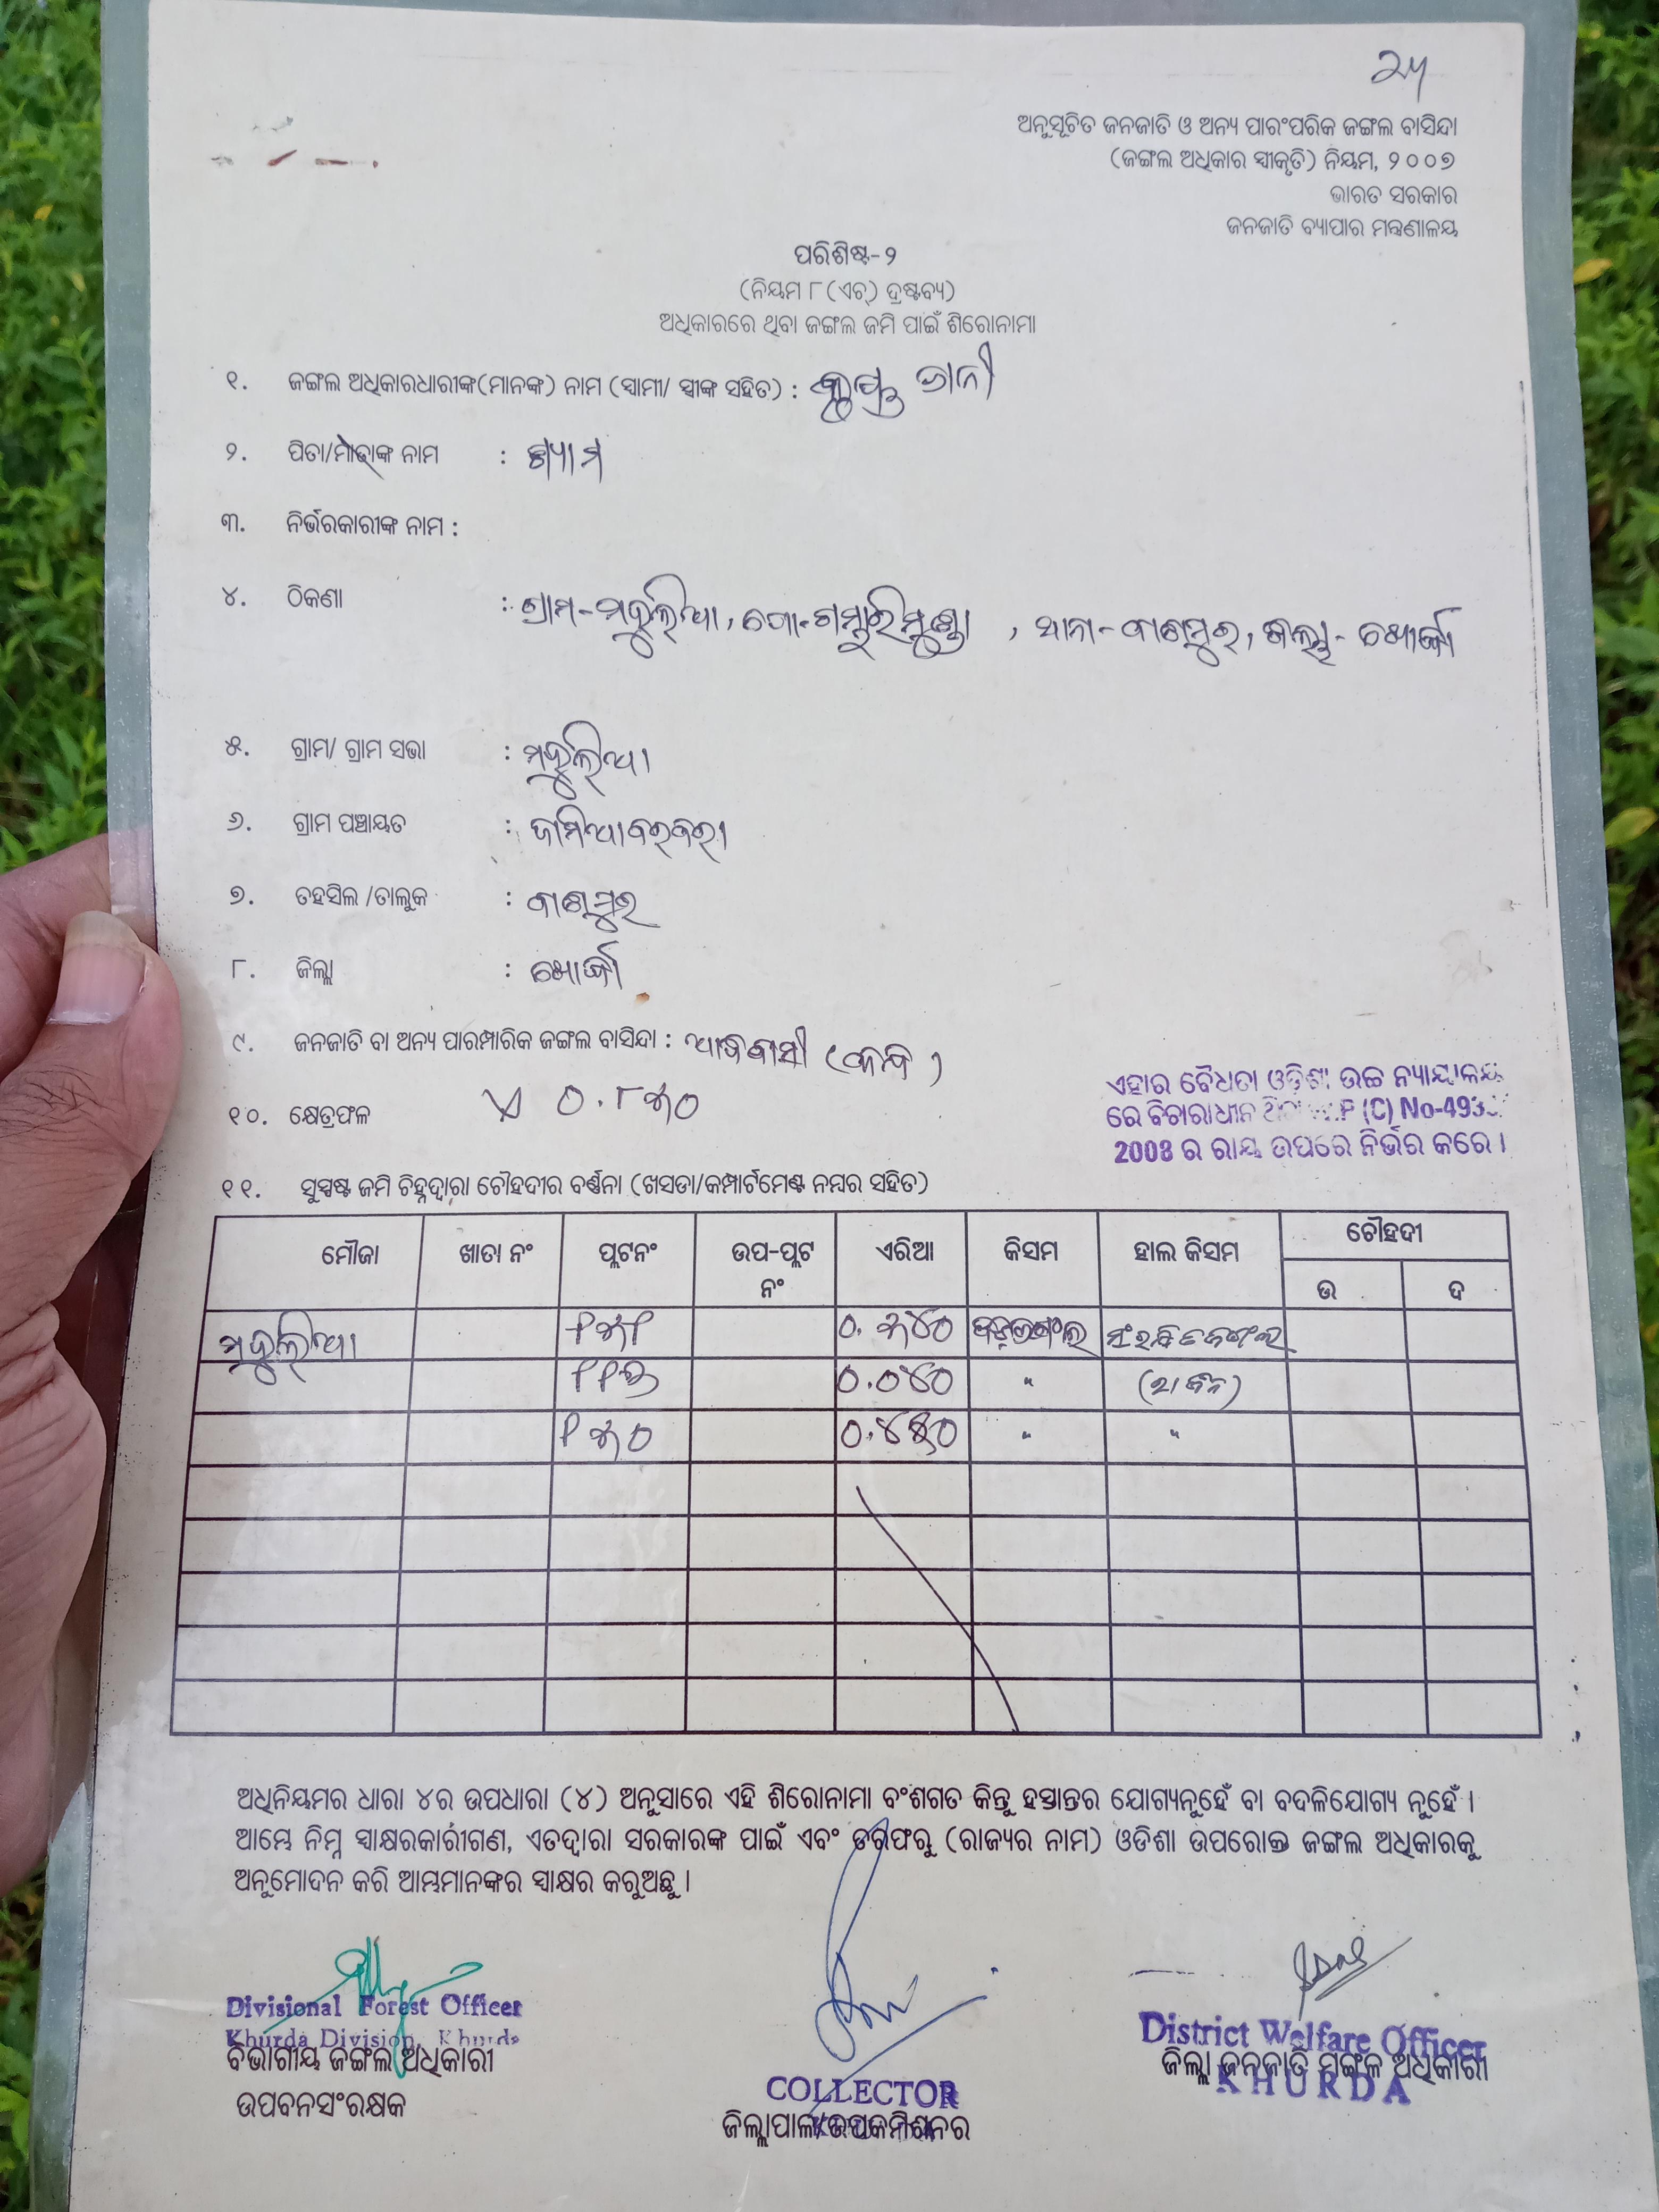 ୨୳
ଅନୁସୂଚିତ ଜନଜାତି ଓ ଅନ୍ୟ ପାରଂପରିକ ଜଙ୍ଗଲ ବାସିନ୍ଦା
(ଜଙ୍ଗଲ ଅଧିକାର ସ୍ୱୀକୃତି) ନିୟମ, ୨୦୦୭
ଭାରତ ସରକାର
ଜନଜାତି ବ୍ୟାପାର ମନ୍ତ୍ରଣାଳୟ
ପରିଶିଷ୍ଟ-୨
(ନିୟମ ୮(ଏଚ୍) ଦ୍ରଷ୍ଟବ୍ୟ)
ଅଧିକାରରେ ଥିବା ଜଙ୍ଗଲ ଜମି ପାଇଁ ଶିରୋନାମା
୧. ଜଙ୍ଗଲ ଅଧିକାରଧାରୀଙ୍କ(ମାନଙ୍କ) ନାମ (ସ୍ୱାମୀ/ ସ୍ତ୍ରୀଙ୍କ ସହିତ) : ଜାନୀ
୨. ପିତା/ମାତାଙ୍କ ନାମ : ଶ୍ୟାମ
୩. ନିର୍ଭରକାରୀଙ୍କ ନାମ :
୪. ଠିକଣା : ଗ୍ରାମ-ମଝୁଲିଆ, ପୋ-ଗମ୍ଭାରିମୁଣ୍ଡା, ଥାନା-ବାଣପୁର, ଜିଲ୍ଲା-ଖୋର୍ଦ୍ଧା
୫. ଗ୍ରାମ/ ଗ୍ରାମ ସଭା : ମଝୁଲିଆ
୬. ଗ୍ରାମ ପଞ୍ଚାୟତ :
୭. ତହସିଲ /ତାଲୁକ : ବାଣପୁର
୮. ଜିଲ୍ଲା : ଖୋର୍ଦ୍ଧା
୯. ଜନଜାତି ବା ଅନ୍ୟ ପାରମ୍ପାରିକ ଜଙ୍ଗଲ ବାସିନ୍ଦା : ଆଦିବାସୀ (କନ୍ଧ)
୧୦. କ୍ଷେତ୍ରଫଳ ଏ ୦.୮୫୦
ଏହାର ବୈଧତା ଓଡ଼ିଶା ଉଚ୍ଚ ନ୍ୟାୟାଳୟ
ରେ ବିଚାରାଧୀନ (C) No-493
2008 ର ରାୟ ଉପରେ ନିର୍ଭର କରେ।
୧୧. ସୁସ୍ପଷ୍ଟ ଜମି ଚିହ୍ନଦ୍ୱାରା ଚୌହଦୀର ବର୍ଣ୍ଣନା (ଖସଡା/କମ୍ପାର୍ଟମେଣ୍ଟ ନମ୍ବର ସହିତ)
ମୌଜା ଖାତା ନଂ ପ୍ଲଟନଂ ଉପ-ପ୍ଲଟ ନଂ ଏରିଆ କିସମ ହାଲ କିସମ ଚୌହଦୀ
ଉ ଦ
ମଝୁଲିଆ ୧୫୧ ୦.୩୪୦ ସଂରକ୍ଷିତ ଜଙ୍ଗଲ
୦.୦୪୦ "
୧୫୦ " "
ଅଧିନିୟମର ଧାରା ୪ର ଉପଧାରା (୪) ଅନୁସାରେ ଏହି ଶିରୋନାମା ବଂଶଗତ କିନ୍ତୁ ହସ୍ତାନ୍ତର ଯୋଗ୍ୟନୁହେଁ ବା ବଦଳିଯୋଗ୍ୟ ନୁହେଁ।
ଆମ୍ଭେ ନିମ୍ନ ସ୍ୱାକ୍ଷରକାରୀଗଣ, ଏତଦ୍ୱାରା ସରକାରଙ୍କ ପାଇଁ ଏବଂ ତରଫରୁ (ରାଜ୍ୟର ନାମ) ଓଡିଶା ଉପରୋକ୍ତ ଜଙ୍ଗଲ ଅଧିକାରକୁ
ଅନୁମୋଦନ କରି ଆମ୍ଭମାନଙ୍କର ସ୍ୱାକ୍ଷର କରୁଅଛୁ।
Divisional Forest Officer
Khurda Division, Khurda
ବିଭାଗୀୟ ଜଙ୍ଗଲ ଅଧିକାରୀ
ଉପବନସଂରକ୍ଷକ
COLLECTOR
ଜିଲ୍ଲାପାଳ/ଉପକମିଶନର
District Welfare Officer
ଜିଲ୍ଲା ଜନଜାତି ମଙ୍ଗଳ ଅଧିକାରୀ
KHURDA